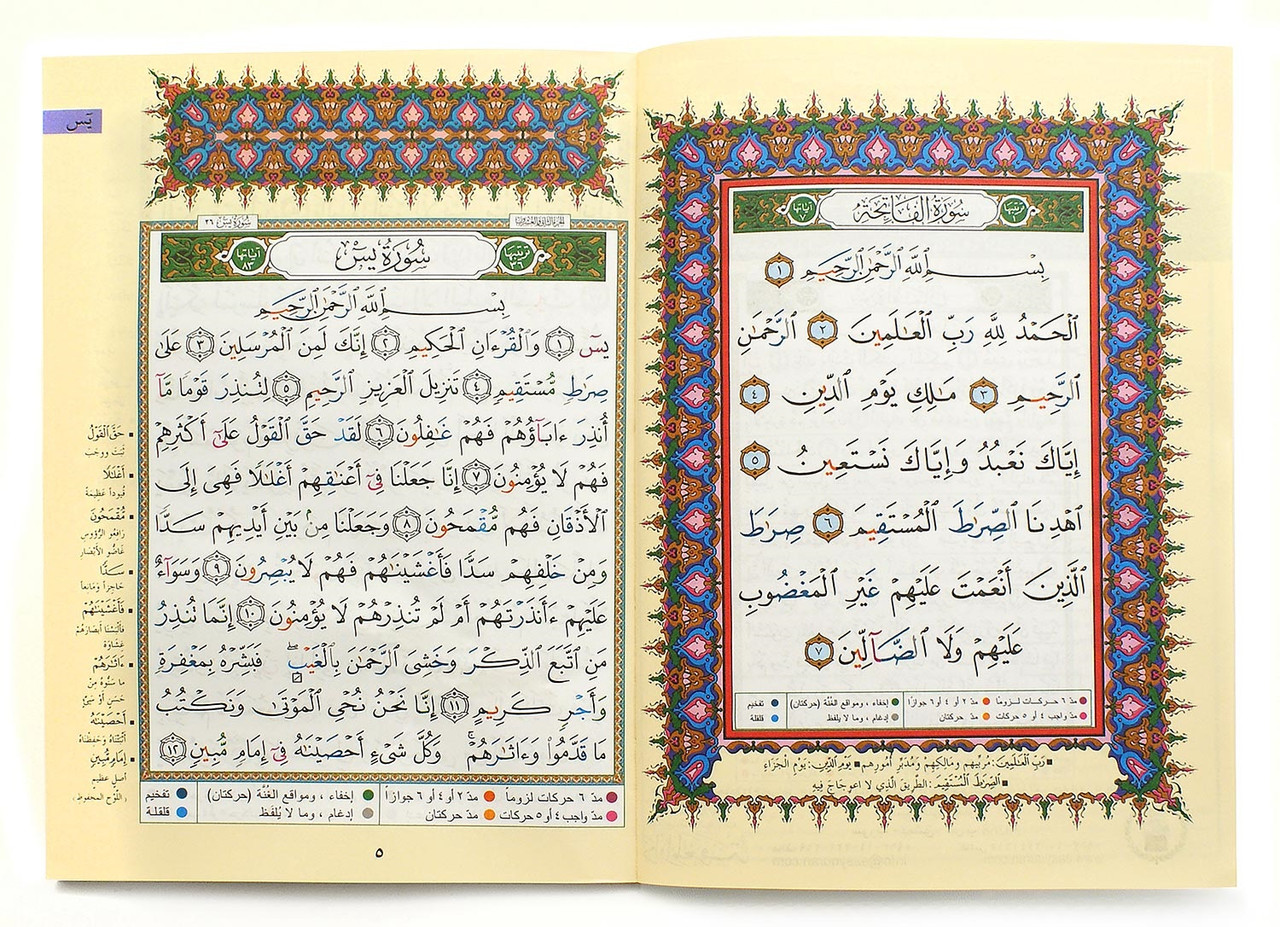 سُورَةُ الفَاتِحَةِ
ترتيبها ١
آياتها ٧
بِسْمِ ٱللَّهِ ٱلرَّحْمَٰنِ ٱلرَّحِيمِ ١
ٱلْحَمْدُ لِلَّهِ رَبِّ ٱلْعَٰلَمِينَ ٢ ٱلرَّحْمَٰنِ
ٱلرَّحِيمِ ٣ مَٰلِكِ يَوْمِ ٱلدِّينِ ٤
إِيَّاكَ نَعْبُدُ وَإِيَّاكَ نَسْتَعِينُ ٥
ٱهْدِنَا ٱلصِّرَٰطَ ٱلْمُسْتَقِيمَ ٦ صِرَٰطَ
ٱلَّذِينَ أَنْعَمْتَ عَلَيْهِمْ غَيْرِ ٱلْمَغْضُوبِ
عَلَيْهِمْ وَلَا ٱلضَّآلِّينَ ٧
مدّ ٦ حركات لزوماً مدّ ٢ أو ٤ أو ٦ جوازاً إخفاء، ومواقع الغُنَّة (حركتان) تفخيم
مدّ واجب ٤ أو ٥ حركات مدّ حركتان إدغام، وما لا يلفظ قلقلة
▪ رَبِّ العَالَمِينَ: مُربّيهم ومَالِكِهِم ومُدَبّر أمُورِهِم ▪ يَوْمِ الدِّينِ: يوْمَ الجَزَاءِ
▪ الصِّرَاطَ المُسْتَقِيمَ: الطريق الذي لا اعوجاج فيه
يسٓ
سُورَةُ يسٓ ٣٦
الجزء الثاني والعشرون
سُورَةُ يسٓ
ترتيبها ٣٦
آياتها ٨٣
بِسْمِ ٱللَّهِ ٱلرَّحْمَٰنِ ٱلرَّحِيمِ
يسٓ ١ وَٱلْقُرْءَانِ ٱلْحَكِيمِ ٢ إِنَّكَ لَمِنَ ٱلْمُرْسَلِينَ ٣ عَلَىٰ
صِرَٰطٍ مُّسْتَقِيمٍ ٤ تَنزِيلَ ٱلْعَزِيزِ ٱلرَّحِيمِ ٥ لِتُنذِرَ قَوْمًا مَّآ
أُنذِرَ ءَابَآؤُهُمْ فَهُمْ غَٰفِلُونَ ٦ لَقَدْ حَقَّ ٱلْقَوْلُ عَلَىٰٓ أَكْثَرِهِمْ
فَهُمْ لَا يُؤْمِنُونَ ٧ إِنَّا جَعَلْنَا فِىٓ أَعْنَٰقِهِمْ أَغْلَٰلًا فَهِىَ إِلَى
ٱلْأَذْقَانِ فَهُم مُّقْمَحُونَ ٨ وَجَعَلْنَا مِنۢ بَيْنِ أَيْدِيهِمْ سَدًّا
وَمِنْ خَلْفِهِمْ سَدًّا فَأَغْشَيْنَٰهُمْ فَهُمْ لَا يُبْصِرُونَ ٩ وَسَوَآءٌ
عَلَيْهِمْ ءَأَنذَرْتَهُمْ أَمْ لَمْ تُنذِرْهُمْ لَا يُؤْمِنُونَ ١٠ إِنَّمَا تُنذِرُ
مَنِ ٱتَّبَعَ ٱلذِّكْرَ وَخَشِىَ ٱلرَّحْمَٰنَ بِٱلْغَيْبِ ۖ فَبَشِّرْهُ بِمَغْفِرَةٍ
وَأَجْرٍ كَرِيمٍ ١١ إِنَّا نَحْنُ نُحْىِ ٱلْمَوْتَىٰ وَنَكْتُبُ
مَا قَدَّمُوا۟ وَءَاثَٰرَهُمْ ۚ وَكُلَّ شَىْءٍ أَحْصَيْنَٰهُ فِىٓ إِمَامٍ مُّبِينٍ ١٢
▪ حَقَّ القَوْلُ
ثَبَتَ ووجَبَ
▪ أغْلَالًا
قُيوداً عَظِيمَةً
▪ مُقْمَحُونَ
رَافِعُو الرُّؤوس
غَاضُّو الأبْصَار
▪ سَدًّا
حَاجِزاً ومَانِعاً
▪ فَأغْشَيْنَاهُمْ
فألْبَسْنَا أبْصَارَهُمْ
غِشَاوَة
▪ ءَاثَارَهُمْ
ما سَنُّوهُ مِنْ
حَسَنٍ أو سَيّئ
▪ أحْصَيْنَاهُ
أثْبَتْنَاهُ وحَفِظْنَاهُ
▪ إمَامٍ مُّبِينٍ
أصلٍ عظيمٍ
(اللَّوْح المحفوظ)
مدّ ٦ حركات لزوماً مدّ ٢ أو ٤ أو ٦ جوازاً إخفاء، ومواقع الغُنَّة (حركتان) تفخيم
مدّ واجب ٤ أو ٥ حركات مدّ حركتان إدغام، وما لا يُلفَظ قلقلة
٥